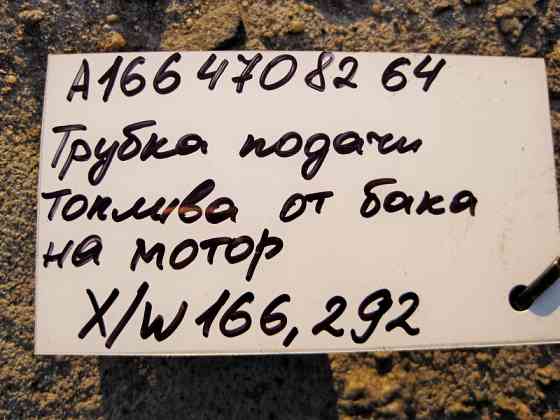 A166 470 82 64
Трубка подачи
топлива от бака
на мотор
X/W166, 292